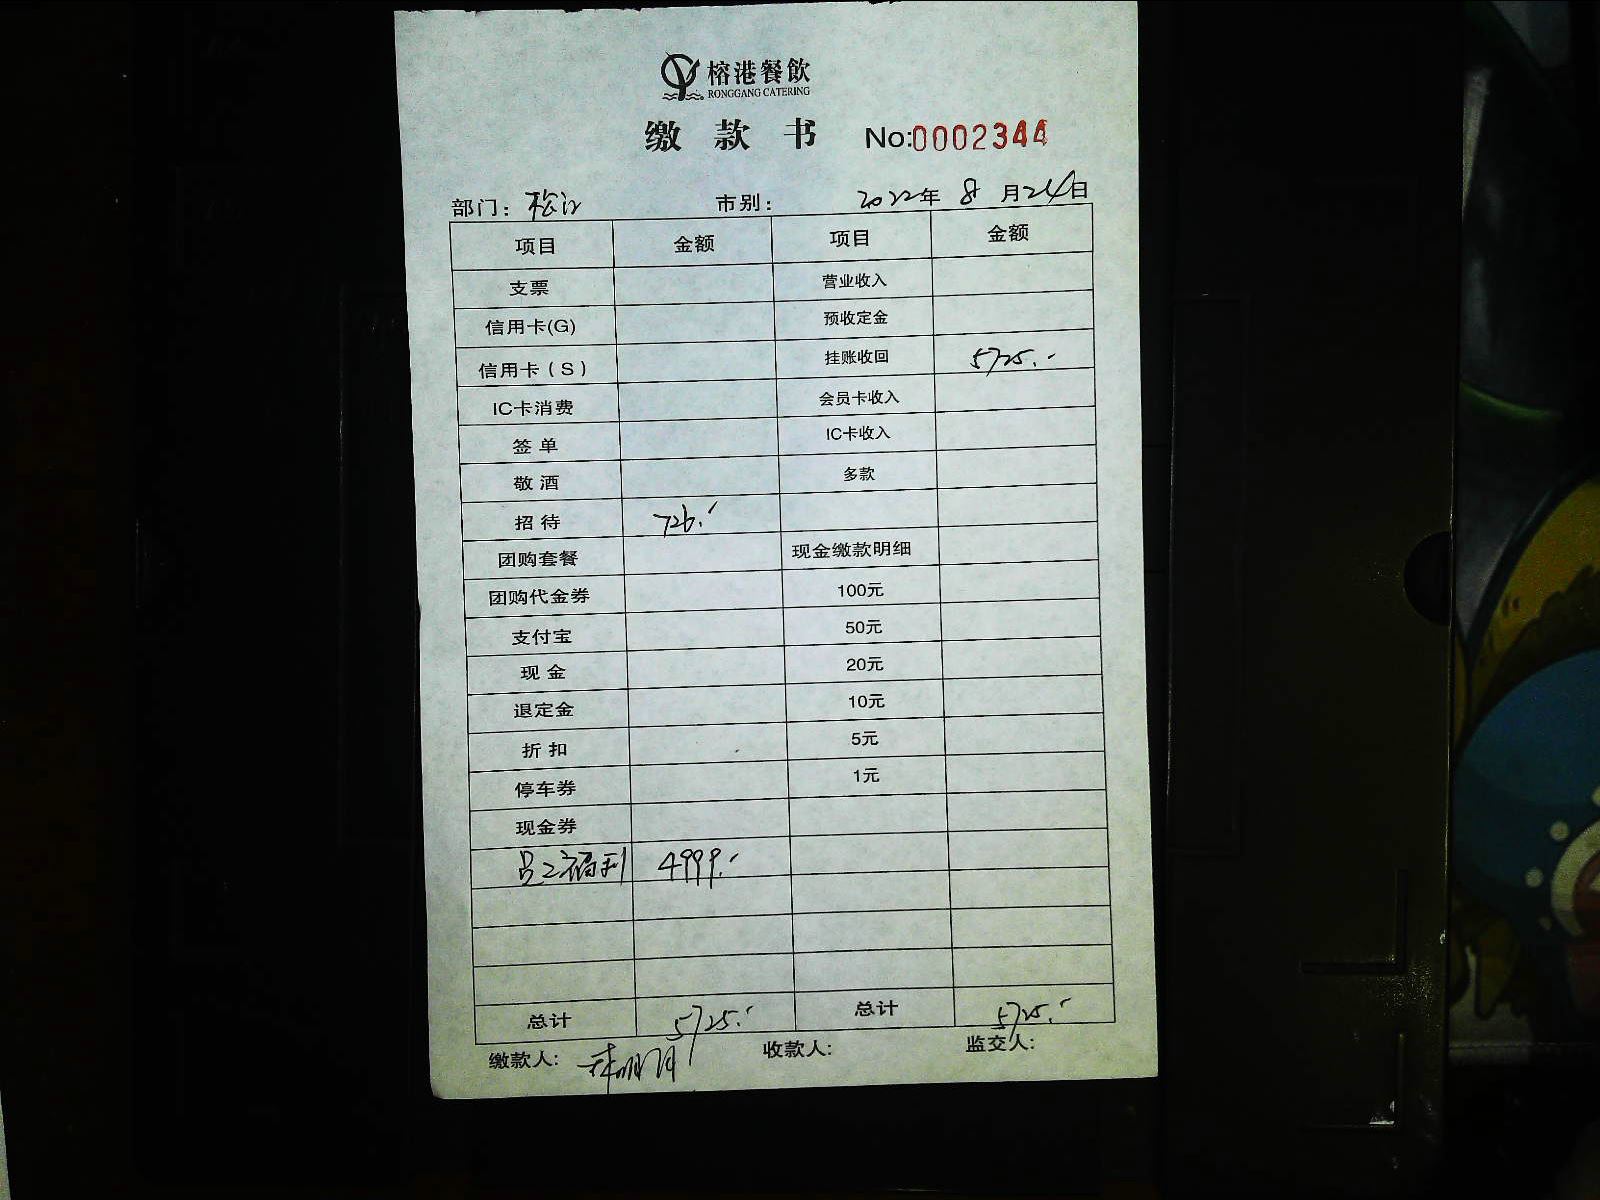 榕港餐飲
RONGGANG CATERING
缴款书 No:0002344
部门: 松江 市别: 2022年 8月24日
项目 金额 项目 金额
支票 营业收入
信用卡(G) 预收定金
信用卡(S) 挂账收回 5725.-
IC卡消费 会员卡收入
签单 IC卡收入
敬酒 多款
招待 726.-
团购套餐 现金缴款明细
团购代金券 100元
支付宝 50元
现金 20元
退定金 10元
折扣 5元
停车券 1元
现金券
员工福利 4999.-
总计 5725.- 总计 5725.-
缴款人: 收款人: 监交人: